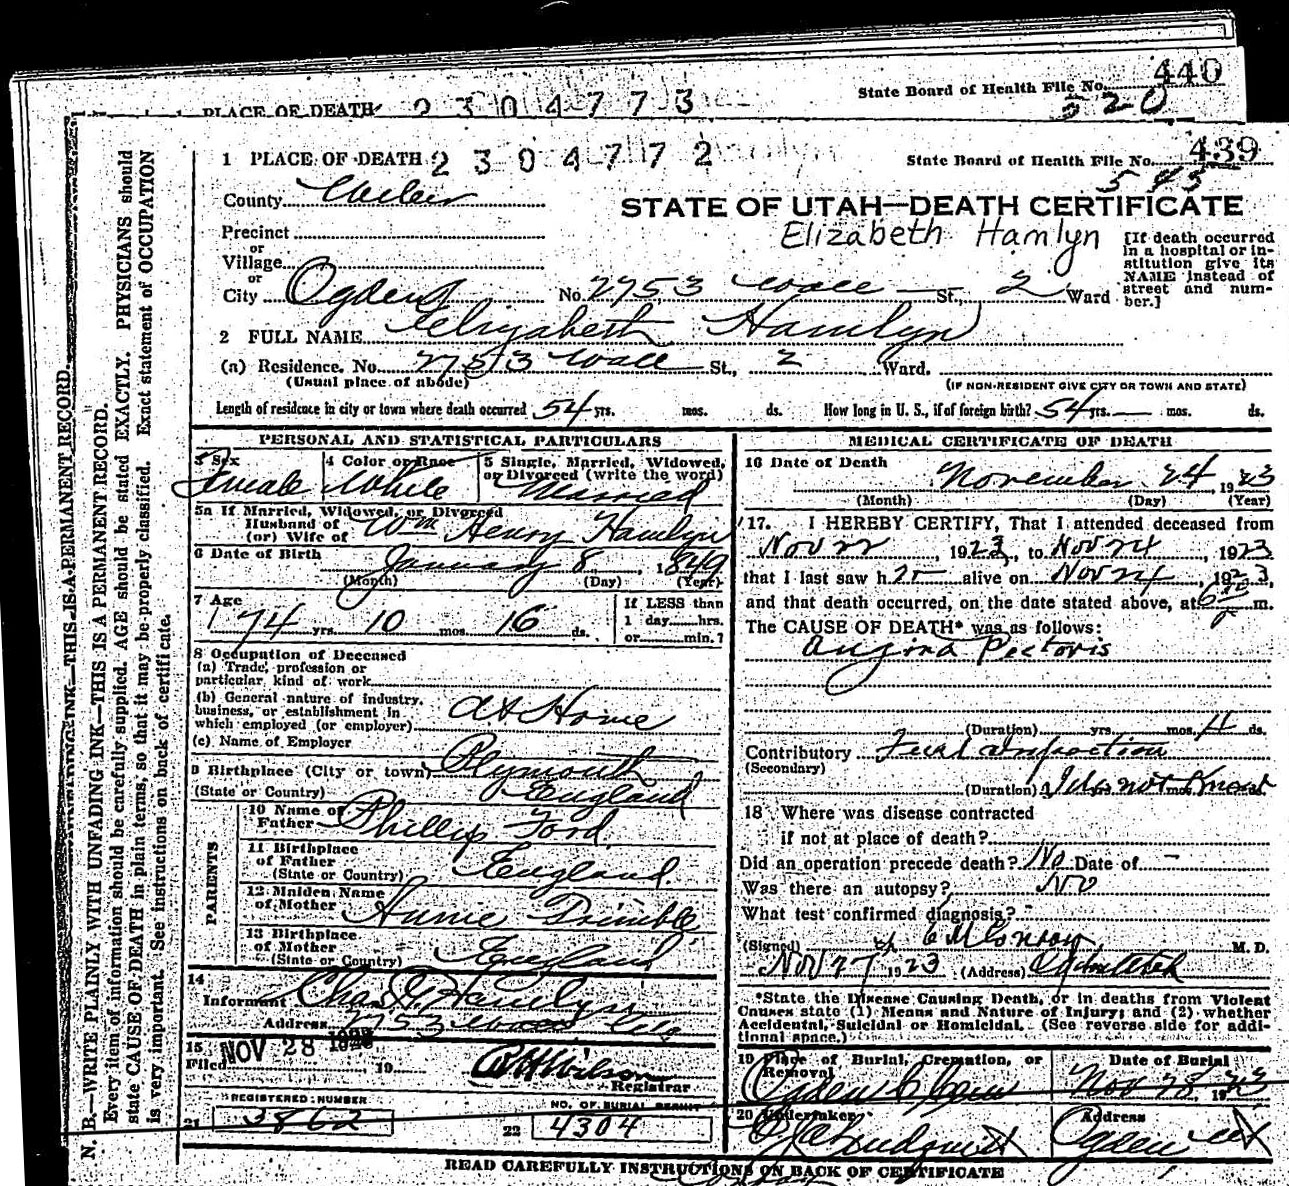 440
State Board of Health File No.
520
PLACE OF DEATH 2304773
1 PLACE OF DEATH 2304772
State Board of Health File No. 439
543
County Weber
STATE OF UTAH—DEATH CERTIFICATE
Elizabeth Hamlyn
Precinct
or
Village
or
City Ogden No. 2753 Wall St., 2 Ward
[If death occurred in a hospital or institution give its NAME instead of street and number.]
2 FULL NAME Elizabeth Hamlyn
(a) Residence. No. 2753 Wall St., 2 Ward.
(Usual place of abode)
(IF NON-RESIDENT GIVE CITY OR TOWN AND STATE)
Length of residence in city or town where death occurred 54 yrs. mos. ds. How long in U. S., if of foreign birth? 54 yrs. — mos. ds.
PERSONAL AND STATISTICAL PARTICULARS
3 Sex
Female
4 Color or Race
White
5 Single, Married, Widowed, or Divorced (write the word)
Married
5a If Married, Widowed, or Divorced
Husband of
(or) Wife of Wm Henry Hamlyn
6 Date of Birth
January 8, 1849
(Month) (Day) (Year)
7 Age
74 yrs. 10 mos. 16 ds.
If LESS than
1 day hrs.
or min.?
8 Occupation of Deceased
(a) Trade, profession or
particular kind of work
(b) General nature of industry,
business, or establishment in
which employed (or employer) At Home
(c) Name of Employer
9 Birthplace (City or town) Plymouth
(State or Country) England
PARENTS
10 Name of
Father Phillip Ford
11 Birthplace
of Father
(State or Country) England
12 Maiden Name
of Mother Annie Trimble
13 Birthplace
of Mother
(State or Country) England
14
Informant Chas Hamlyn
Address 2753 Wall City
15
Filed NOV 28 19
RH Wilson
Registrar
REGISTERED NUMBER
21 3862
NO. OF BURIAL PERMIT
22 4304
MEDICAL CERTIFICATE OF DEATH
16 Date of Death
November 24 1923
(Month) (Day) (Year)
17. I HEREBY CERTIFY, That I attended deceased from
Nov 22, 1923, to Nov 24, 1923
that I last saw h er alive on Nov 24, 1923,
and that death occurred, on the date stated above, at 6 m.
The CAUSE OF DEATH* was as follows:
Angina Pectoris
(Duration) yrs. mos. 4 ds.
Contributory
(Secondary)
(Duration) Does not Know
18 Where was disease contracted
if not at place of death?
Did an operation precede death? No Date of —
Was there an autopsy? No
What test confirmed diagnosis?
(Signed) E M Conroy M. D.
Nov 27 1923 (Address) Ogden Utah
*State the Disease Causing Death, or in deaths from Violent
Causes state (1) Means and Nature of Injury; and (2) whether
Accidental, Suicidal or Homicidal. (See reverse side for addi-
tional space.)
19 Place of Burial, Cremation, or
Removal
Ogden
Date of Burial
Nov 28, 1923
20 Undertaker
Address
Ogden
READ CAREFULLY INSTRUCTIONS ON BACK OF CERTIFICATE
N. B.—WRITE PLAINLY WITH UNFADING INK—THIS IS A PERMANENT RECORD.
Every item of information should be carefully supplied. AGE should be stated EXACTLY. PHYSICIANS should
state CAUSE OF DEATH in plain terms, so that it may be properly classified. Exact statement of OCCUPATION
is very important. See instructions on back of certificate.
INK—THIS IS A PERMANENT RECORD.